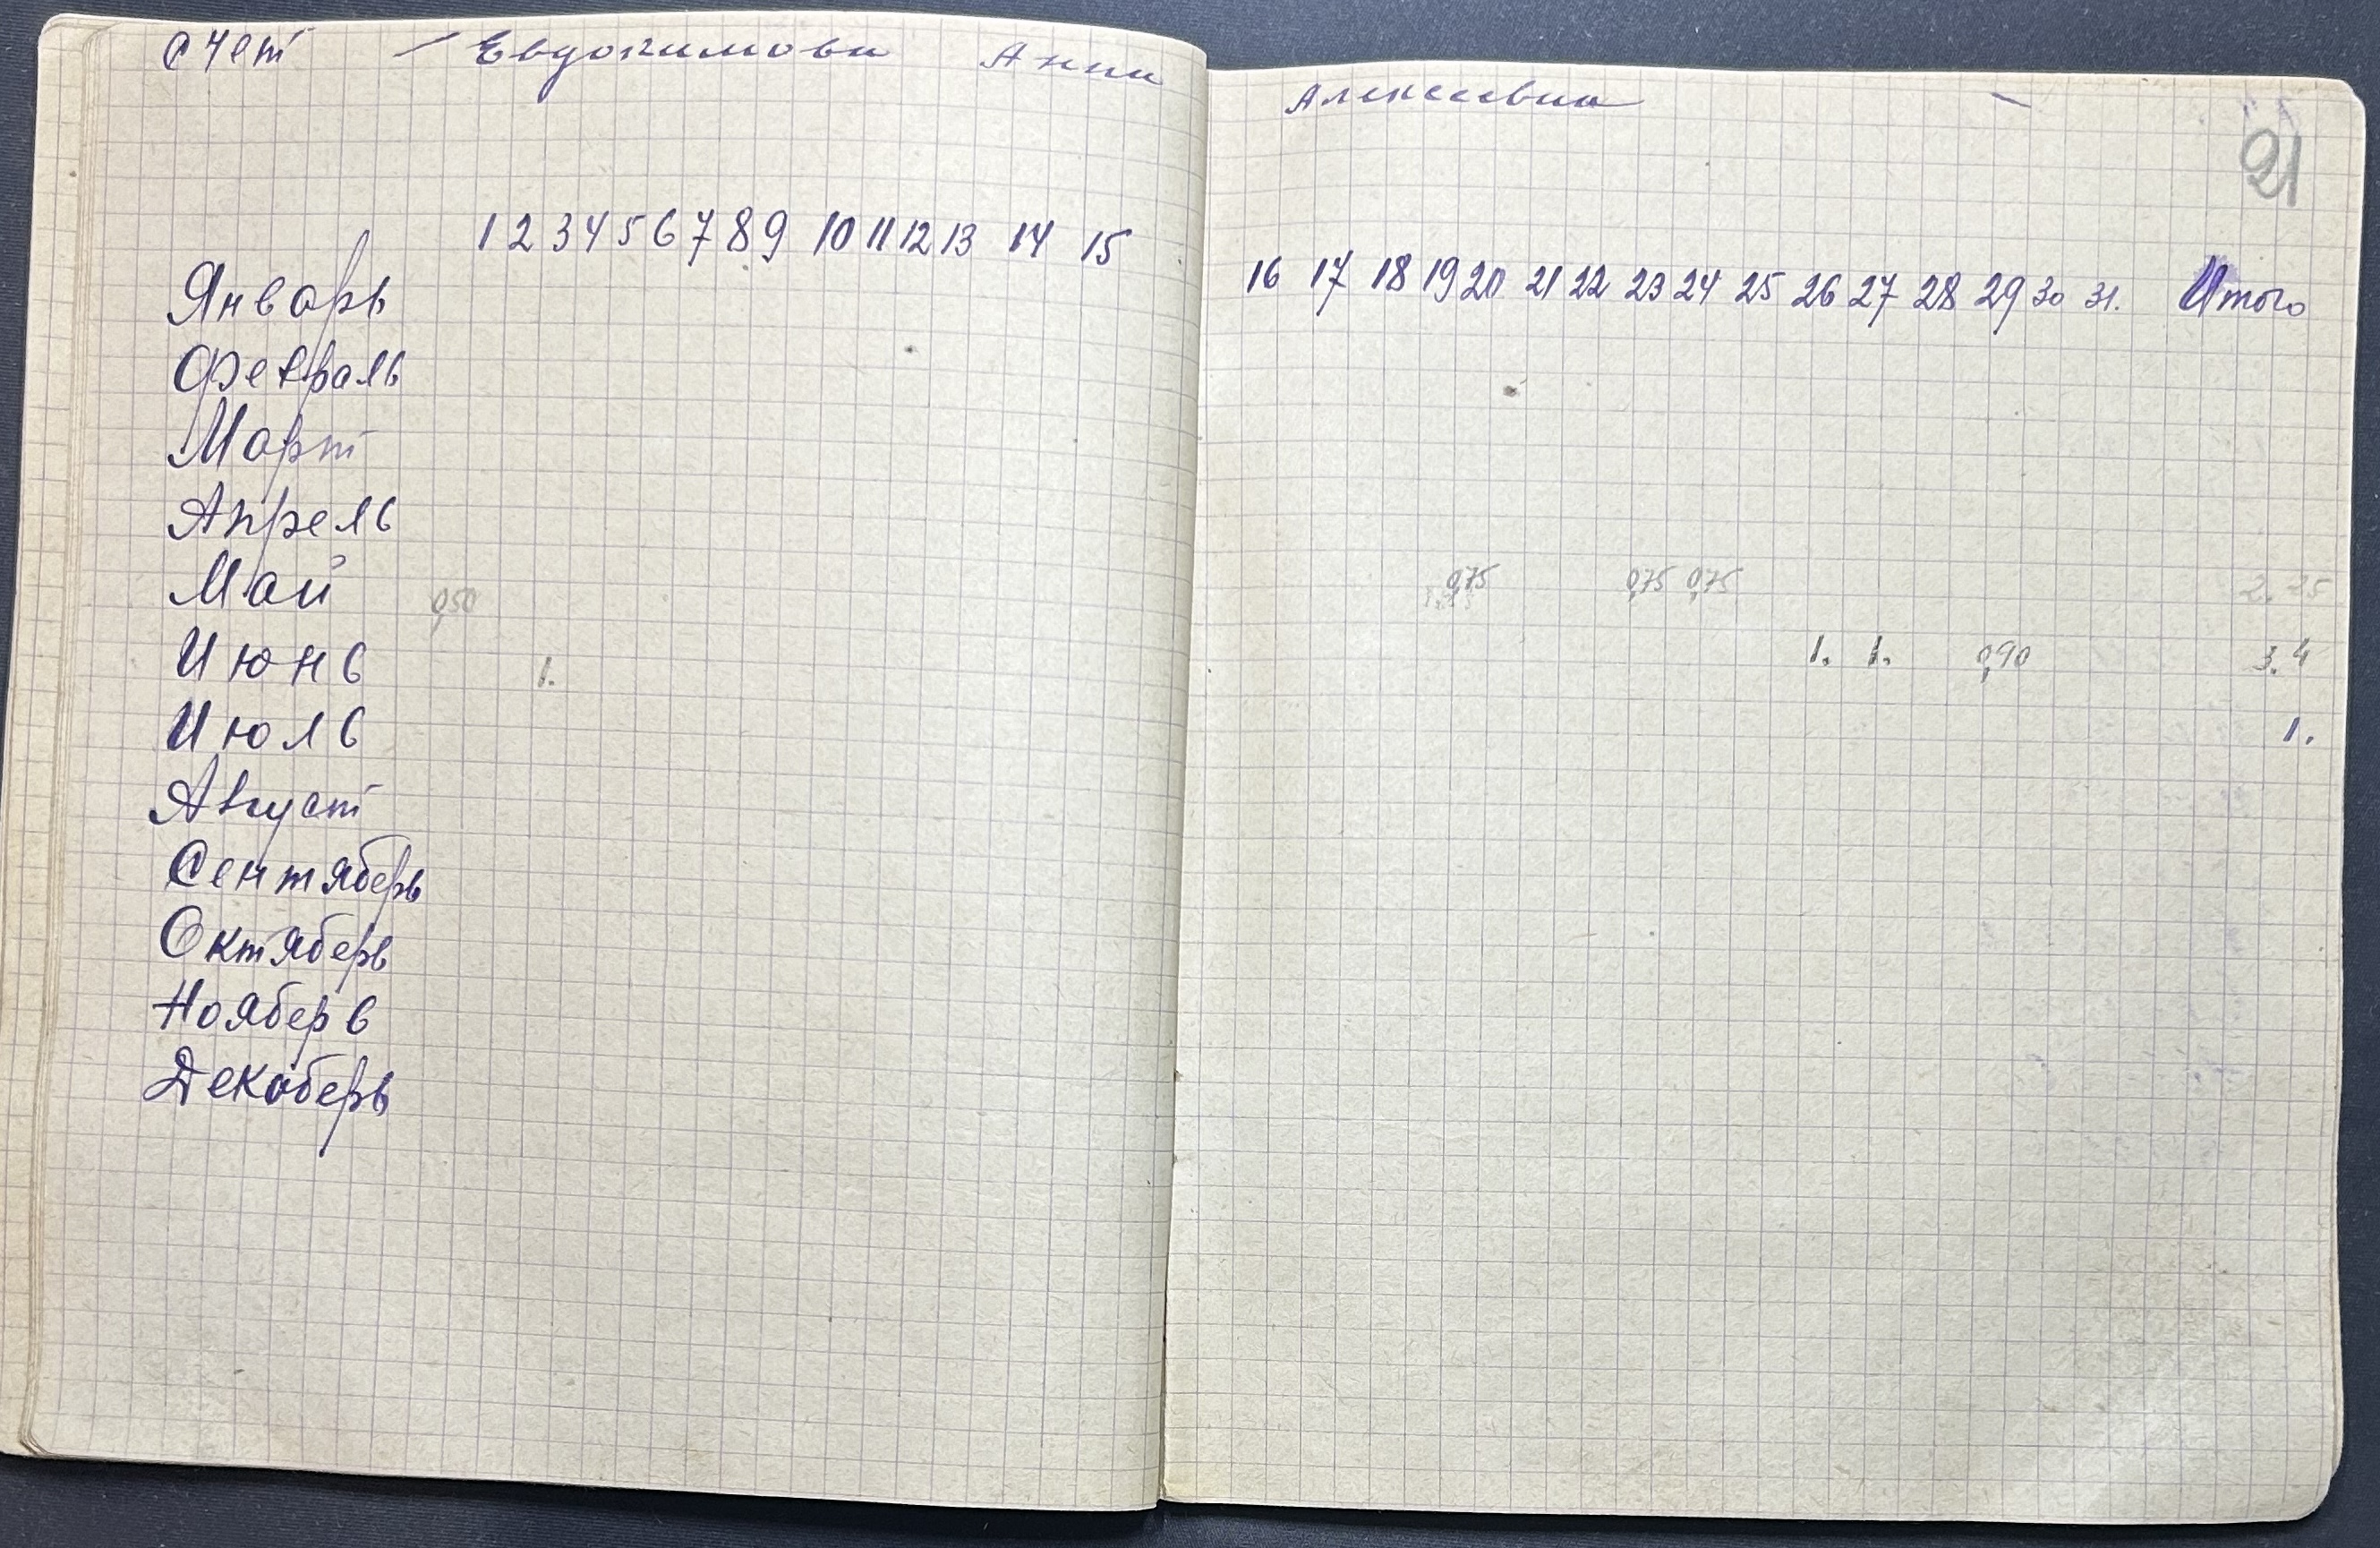 Счет — Евдокимова Анна Алексеевна —
21
1 2 3 4 5 6 7 8 9 10 11 12 13 14 15 16 17 18 19 20 21 22 23 24 25 26 27 28 29 30 31. Итого
Январь
Февраль
Март
Апрель
Май 0,50 0,75 0,75 0,75 2.25
Июнь 1. 1. 1. 0,90 3.4
Июль 1.
Август
Сентяберь
Октяберь
Нояберь
Декаберь